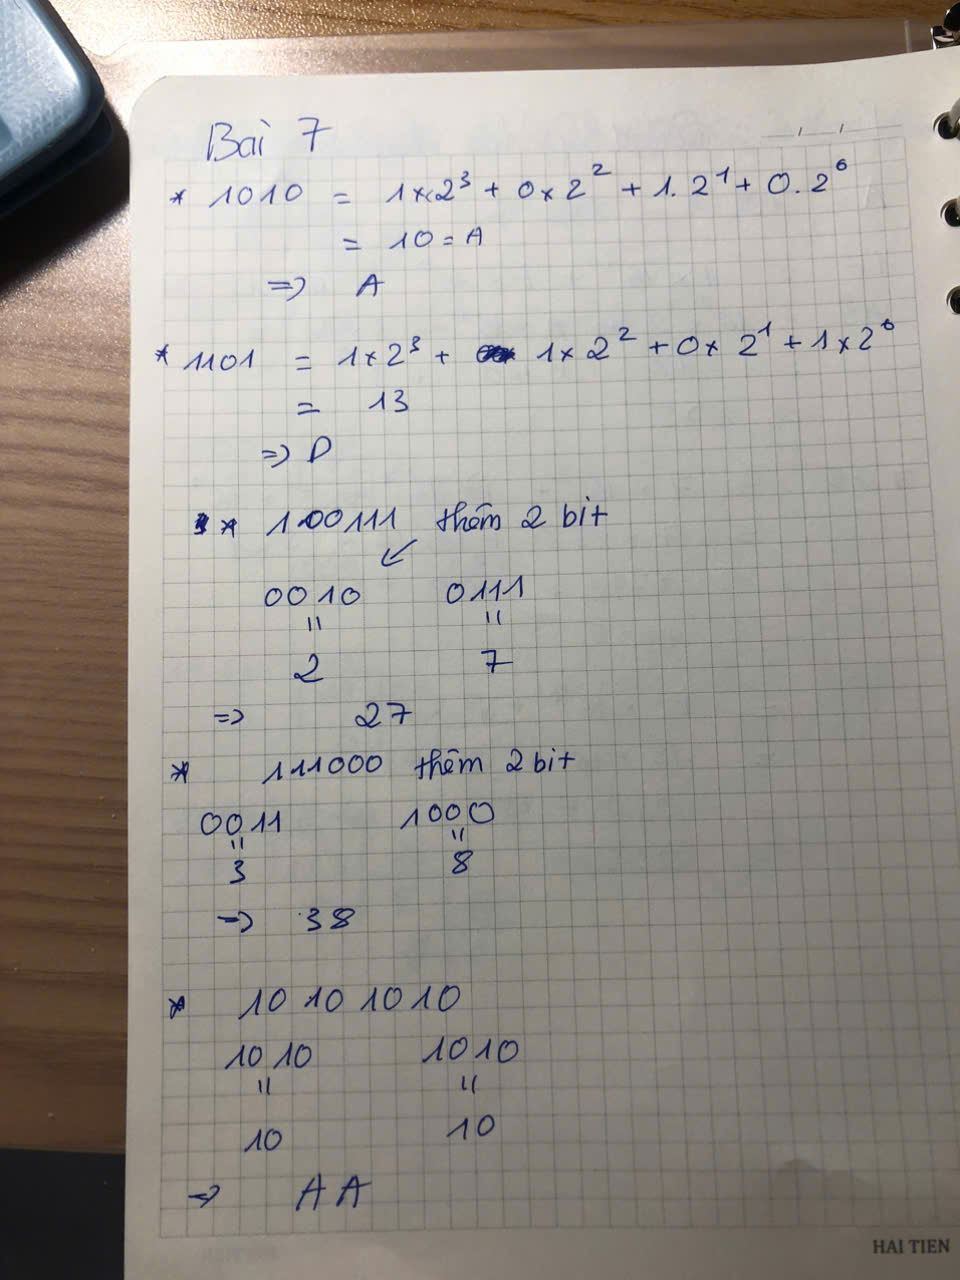 Bài 7
* 1010 = 1×2³ + 0×2² + 1.2¹ + 0.2⁰
= 10 = A
=> A
* 1101 = 1×2³ + 1×2² + 0×2¹ + 1×2⁰
= 13
=> D
* 100111 thêm 2 bit
0010 0111
= =
2 7
=> 27
* 111000 thêm 2 bit
0011 1000
= =
3 8
=> 38
* 10 10 10 10
1010 1010
= =
10 10
=> AA
HAI TIEN